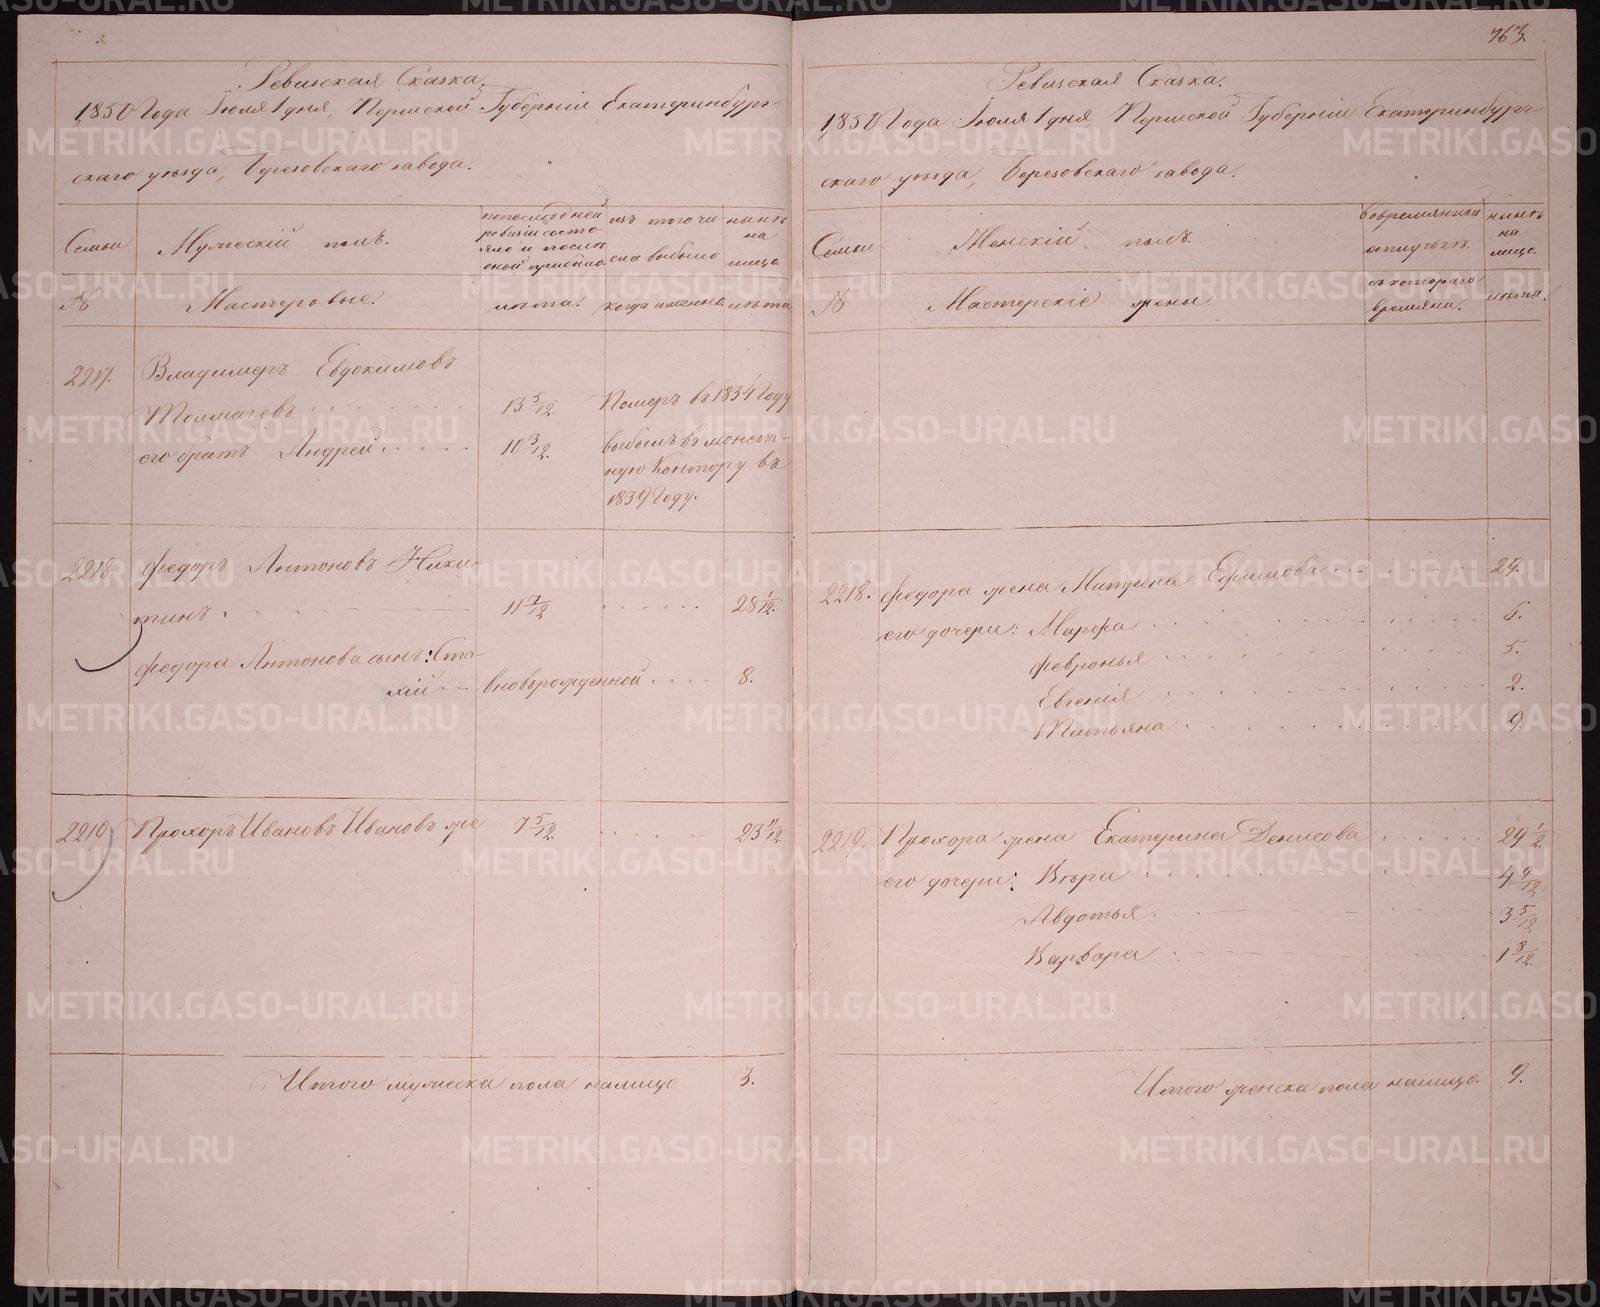 Ревизская Сказка.
1850 Года Іюля 1 дня, Пермской Губерніи Екатеринбург-
скаго уѣзда, Березовскаго завода.
Семьи
Мужескій полъ.
попослѣдней ревизіи состояло и послѣ оной прибыло
изъ того числа выбыло
нынѣ на лицо
№
Мастеровые.
лѣта.
когда именно
лѣта
2217. Владимеръ Евдокимовъ
Толмачевъ 13 5/12. Померъ въ 1834 Году
его братъ Андрей 10 3/12. выбылъ въ монет-
ную Контору въ
1839 Году.
2218 Федоръ Антоновъ Ники-
тинъ. 11 7/12 28 1/12.
Федора Антонова сынъ: Ста-
хій вновьрожденной 8.
2219 Прохоръ Ивановъ Ивановъ же 7 5/12. 23 11/12
Итого мужеска пола налицо 3.
763.
Ревизская Сказка.
1850 Года Іюля 1 дня Пермской Губерніи Екатеринбург-
скаго уѣзда, Березовскаго завода.
Семьи
Женскій полъ.
Вовремянной отлучкѣ
нынѣ на лицо.
№
Мастерскіе жены
съ котораго времяни.
лѣта.
2218. Федора жена Матрена Ефимова 29.
его дочери: Марфа 6.
Февронья 5.
Евгенія 2.
Татьяна 9.
2219. Прохора жена Екатерина Денисова 24 1/2.
его дочери: Вѣра 4 9/12
Авдотья 3 5/12
Варвара 1 8/12.
Итого женска пола налицо. 9.
METRIKI.GASO-URAL.RU